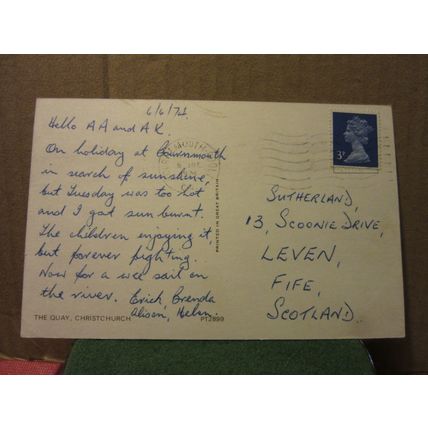 6/6/74
Hello AA and AK.
On holiday at Bournmouth
in search of sunshine,
but Tuesday was too hot
and I got sun burnt.
The children enjoying it,
but forever fighting.
Now for a wee sail on
the river. Erick, Brenda
Alison, Helen.
THE QUAY, CHRISTCHURCH
PT2899
PRINTED IN GREAT BRITAIN
3P
SUTHERLAND,
13, SCOONIE DRIVE,
LEVEN,
FIFE,
SCOTLAND.